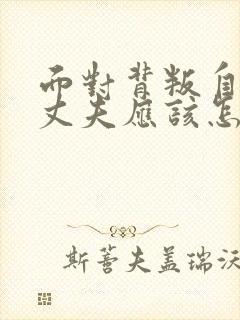 而對背叛自
丈夫應該怎
斯蒈夫盖瑞沃